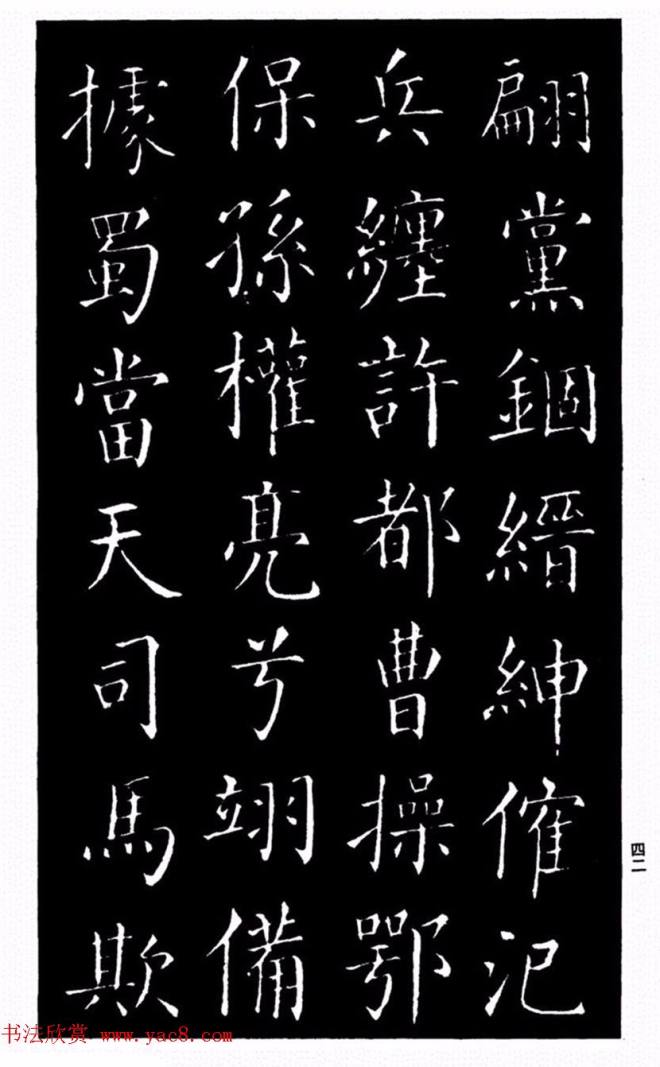 翩黨錮縉紳傕汜
兵纏許都曹操鄂
保孫權亮兮翊備
據蜀當天司馬欺
四二
书法欣赏 www.yac8.com